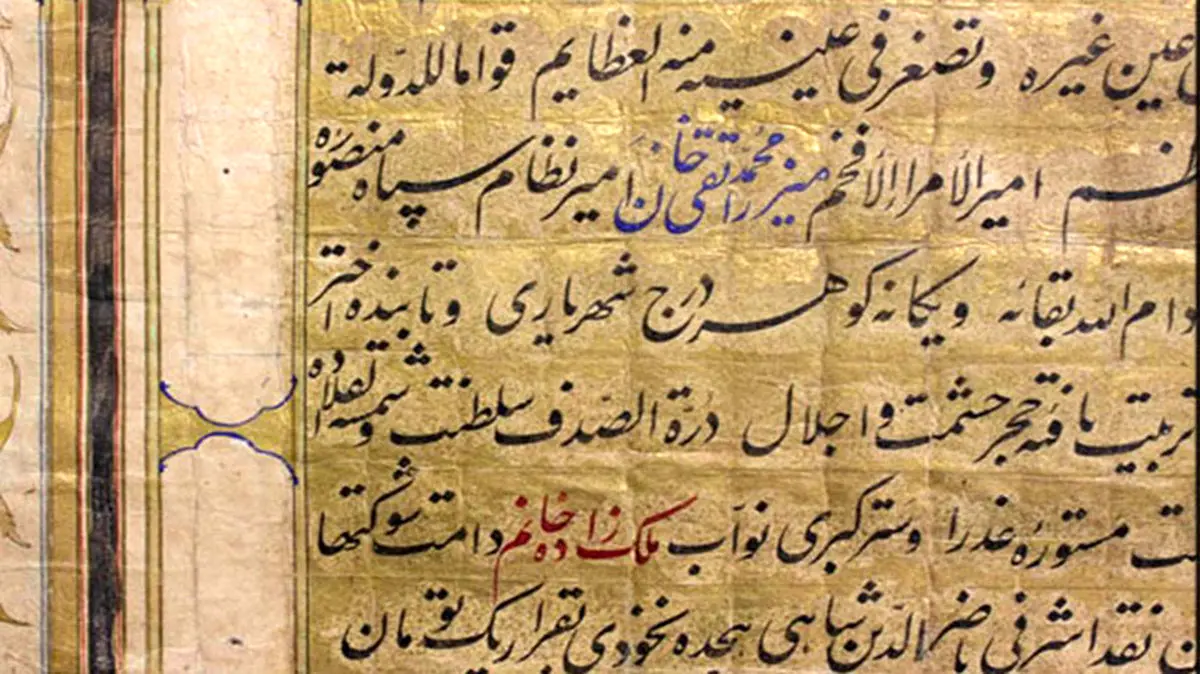 عین غیره و تصغر فی عینیه منه العظایم قواما للدولة
امیر الأمراء الأفخم میرزا محمد تقی خان امیر نظام سپاه منصوره
دام الله بقائه و یکانه کوهر درج شهریاری و تابنده اختر
تربیت یافته حجر حشمت و اجلال درّة الصّدف سلطنت و شمسه القلاده
مستوره عذرا و ستر کبری نوّاب ملک زاده خانم دامت شوکتها
نقد اشرفی ناصر الدّین شاهی هیجده نخودی بقرار یک تومان